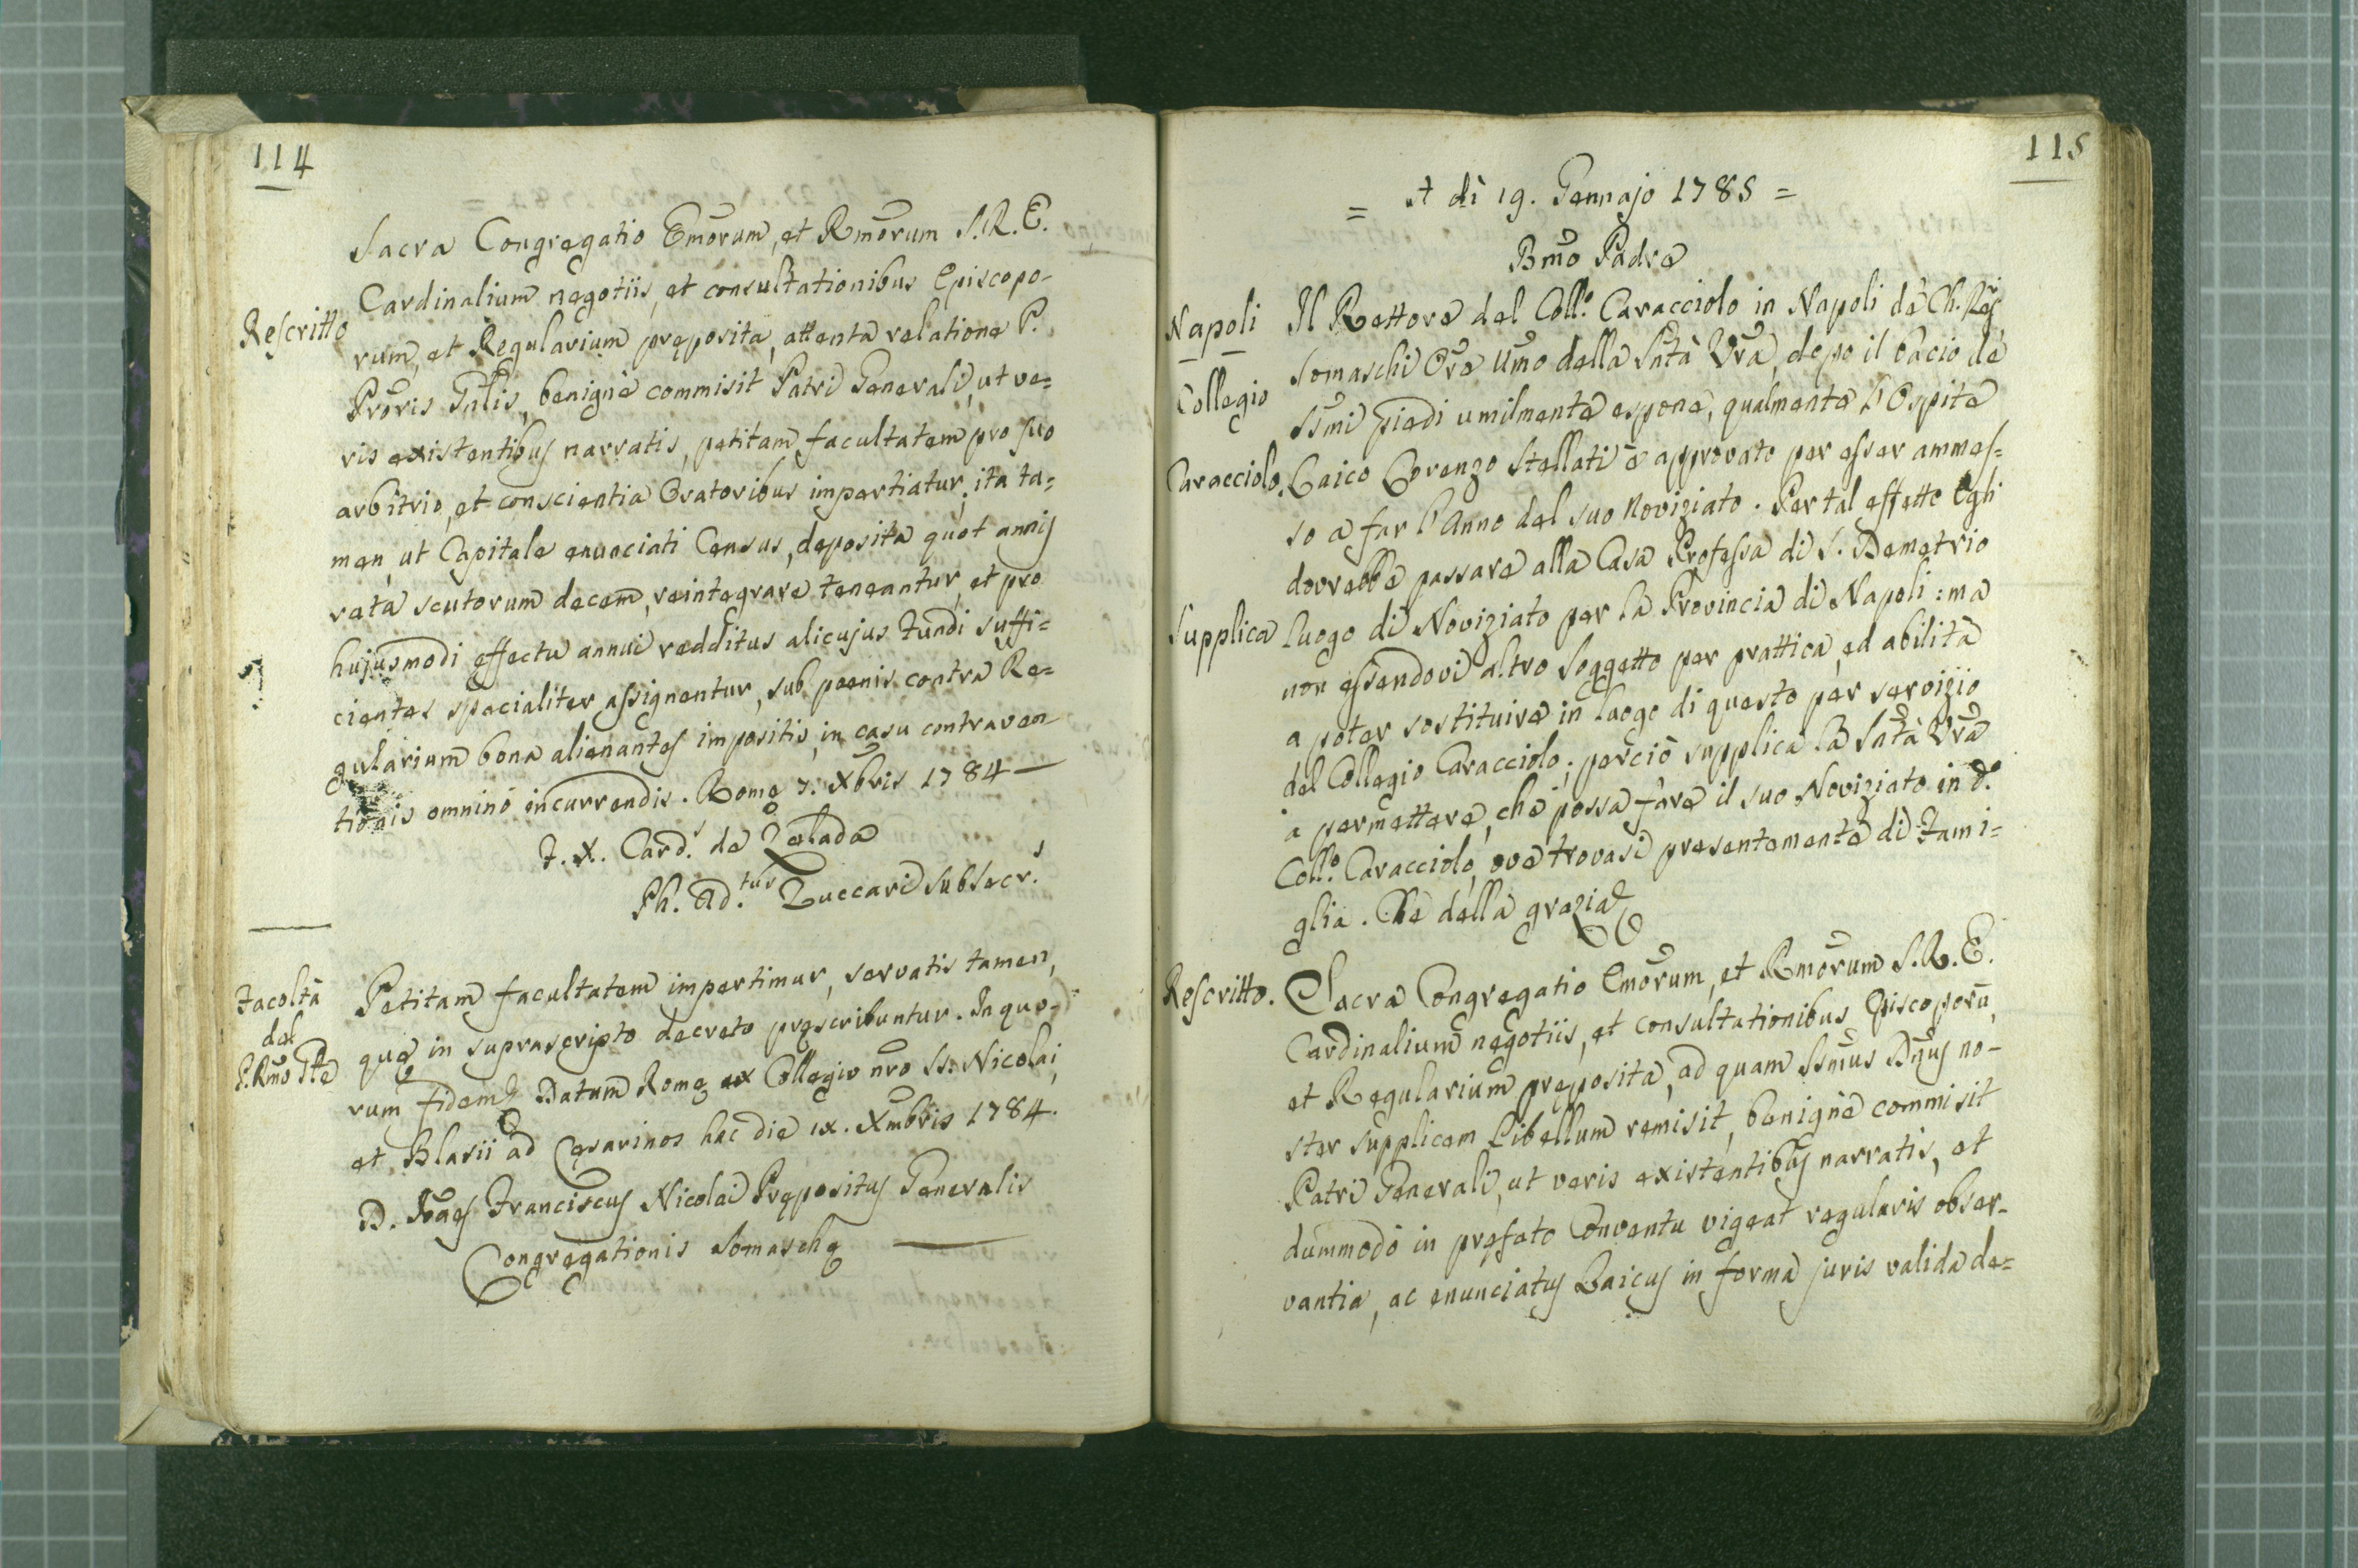 114
Sacra Congregatio Emõrum, et Rmõrum S.R.E.
Cardinalium negotiis, et consultationibus Episcopo-
Rescritto
rum, et Regularium pręposita, attenta relatione P.
Prõris Gñlis, benignè commisit Patri Generali, ut ve=
ris existentibus narratis, petitam facultatem pro suo
arbitrio, et conscientia Oratoribus impertiatur, ita ta=
men, ut Capitale enunciati Census, deposita quot annis
rata scutorum decem, reintegrare teneantur, et pro
hujusmodi effectu annui redditus alicujus Fundi suffi=
cientes specialiter assignentur, sub poenis contra Re=
gularium bona alienantes impositis, in casu contraven
tionis omninò incurrendis. Romę 7. Xbris 1784 —
F. X. Card.s de Zelada
Ph. Ad.tus Zuccari Subsecr.s
Facoltà
del
P. Rmo Gle
Petitam facultatem impertimur, servatis tamen,
quę in suprascripto decreto pręscribuntur. In quo-
rum fidem Datum Romę ex Collegio nr̃o SS. Nicolai,
et Blasii ad Cęsarinos hac die ix. Xmbris 1784.
D. Joães Franciscus Nicolai Prępositus Generalis
Congregationis Somaschę
115
= A dì 19. Gennajo 1785 =
Bmõ Padre
Napoli
Collegio
Caracciolo.
Il Rettore del Coll.o Caracciolo in Napoli de' Ch. Reg.ri
Somaschi Ore Umõ della Sñtà Vr̃a, dopo il bacio de'
SSm̃i piedi umilmente espone, qualmente l'Ospite
Laico Lorenzo Stellati è approvato per esser ammes=
so a far l'Anno del suo Noviziato. Per tal effetto Egli
dovrebbe passare alla Casa Professa di S. Demetrio
Supplica
luogo di Noviziato per la Provincia di Napoli: ma
non essendovi altro Soggetto per prattica, ed abilità
a poter sostituire in luogo di questo per servizio
del Collegio Caracciolo; perciò supplica la Sñtà Vr̃a
a permettere, che possa fare il suo Noviziato in d.o
Coll.o Caracciolo, ove trovasi presentemente di Fami=
glia. Che della grazia
Rescritto.
Sacra Congregatio Emõrum, et Rmõrum S.R.E.
Cardinalium negotiis, et consultationibus Episcoporũ,
et Regularium pręposita, ad quam SSm̃us Dñus no-
ster supplicem Libellum remisit, benignè commisit
Patri Generali, ut veris existentibus narratis, et
dummodò in pręfato Conventu vigeat regularis obser-
vantia, ac enunciatus Laicus in forma juris valida de=